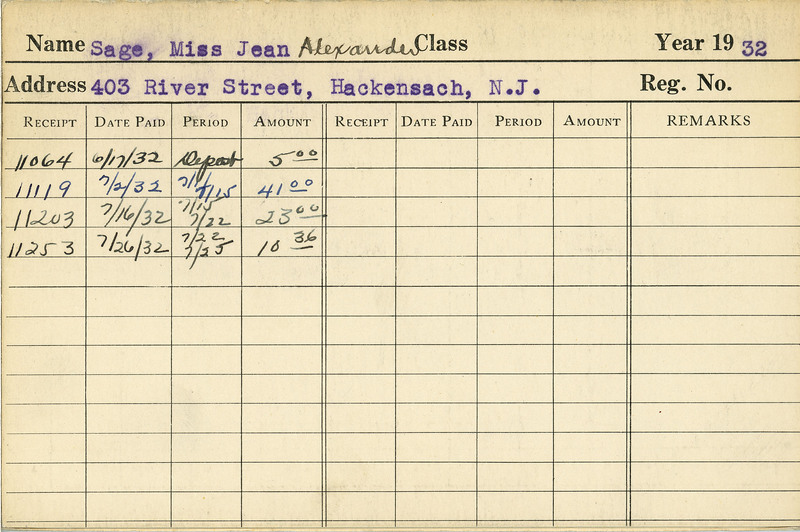 Name Sage, Miss Jean Alexander Class Year 19 32
Address 403 River Street, Hackensach, N.J. Reg. No.
RECEIPT DATE PAID PERIOD AMOUNT RECEIPT DATE PAID PERIOD AMOUNT REMARKS
11064 6/17/32 Deposit 5 00
11119 7/2/32 7/1 7/15 41 00
11203 7/16/32 7/15 7/22 23 00
11253 7/26/32 7/22 7/25 10 36